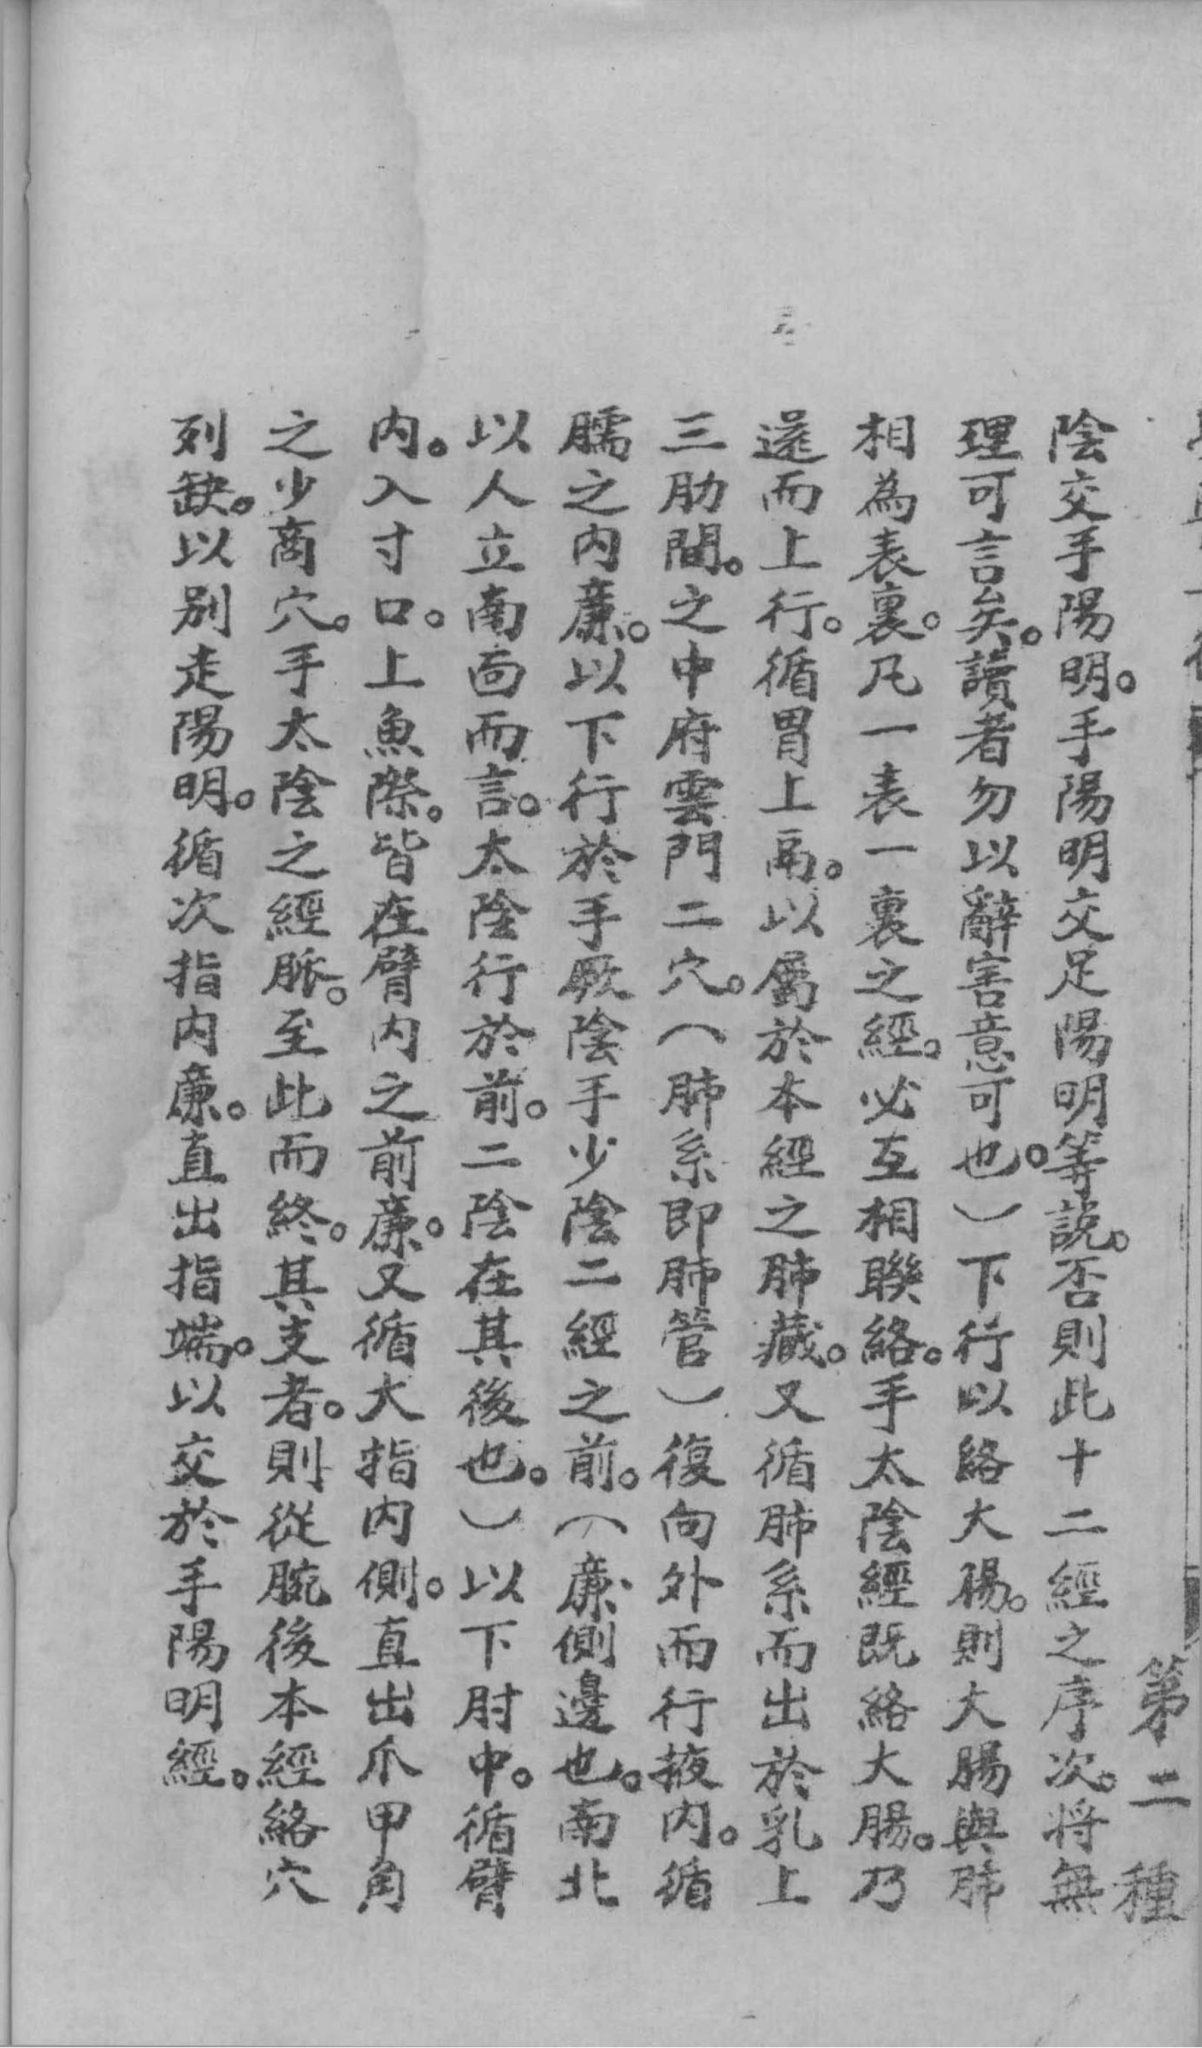 第二種
陰交手陽明。手陽明交足陽明等說。否則此十二經之序次。將無
理可言矣。讀者勿以辭害意可也。）下行以絡大腸。則大腸與肺
相為表裏。凡一表一裏之經。必互相聯絡。手太陰經既絡大腸。乃
還而上行。循胃上鬲。以屬於本經之肺藏。又循肺系而出於乳上
三肋間。之中府雲門二穴。（肺系即肺管）復向外而行掖內。循
臑之內廉。以下行於手厥陰手少陰二經之前。（廉側邊也。南北
以人立南面而言。太陰行於前。二陰在其後也。）以下肘中。循臂
內。入寸口。上魚際。皆在臂內之前廉。又循大指內側。直出爪甲角
之少商穴。手太陰之經脈。至此而終。其支者。則從腕後本經絡穴
列缺。以別走陽明。循次指內廉。直出指端。以交於手陽明經。